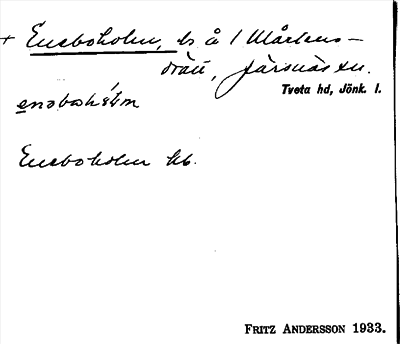 + Eneboholm, ls å 1 Mårtens-
drätt, Järsnäs sn.
Tveta hd, Jönk. l.
enəboshòlm
Eneboholm kb.
FRITZ ANDERSSON 1933.